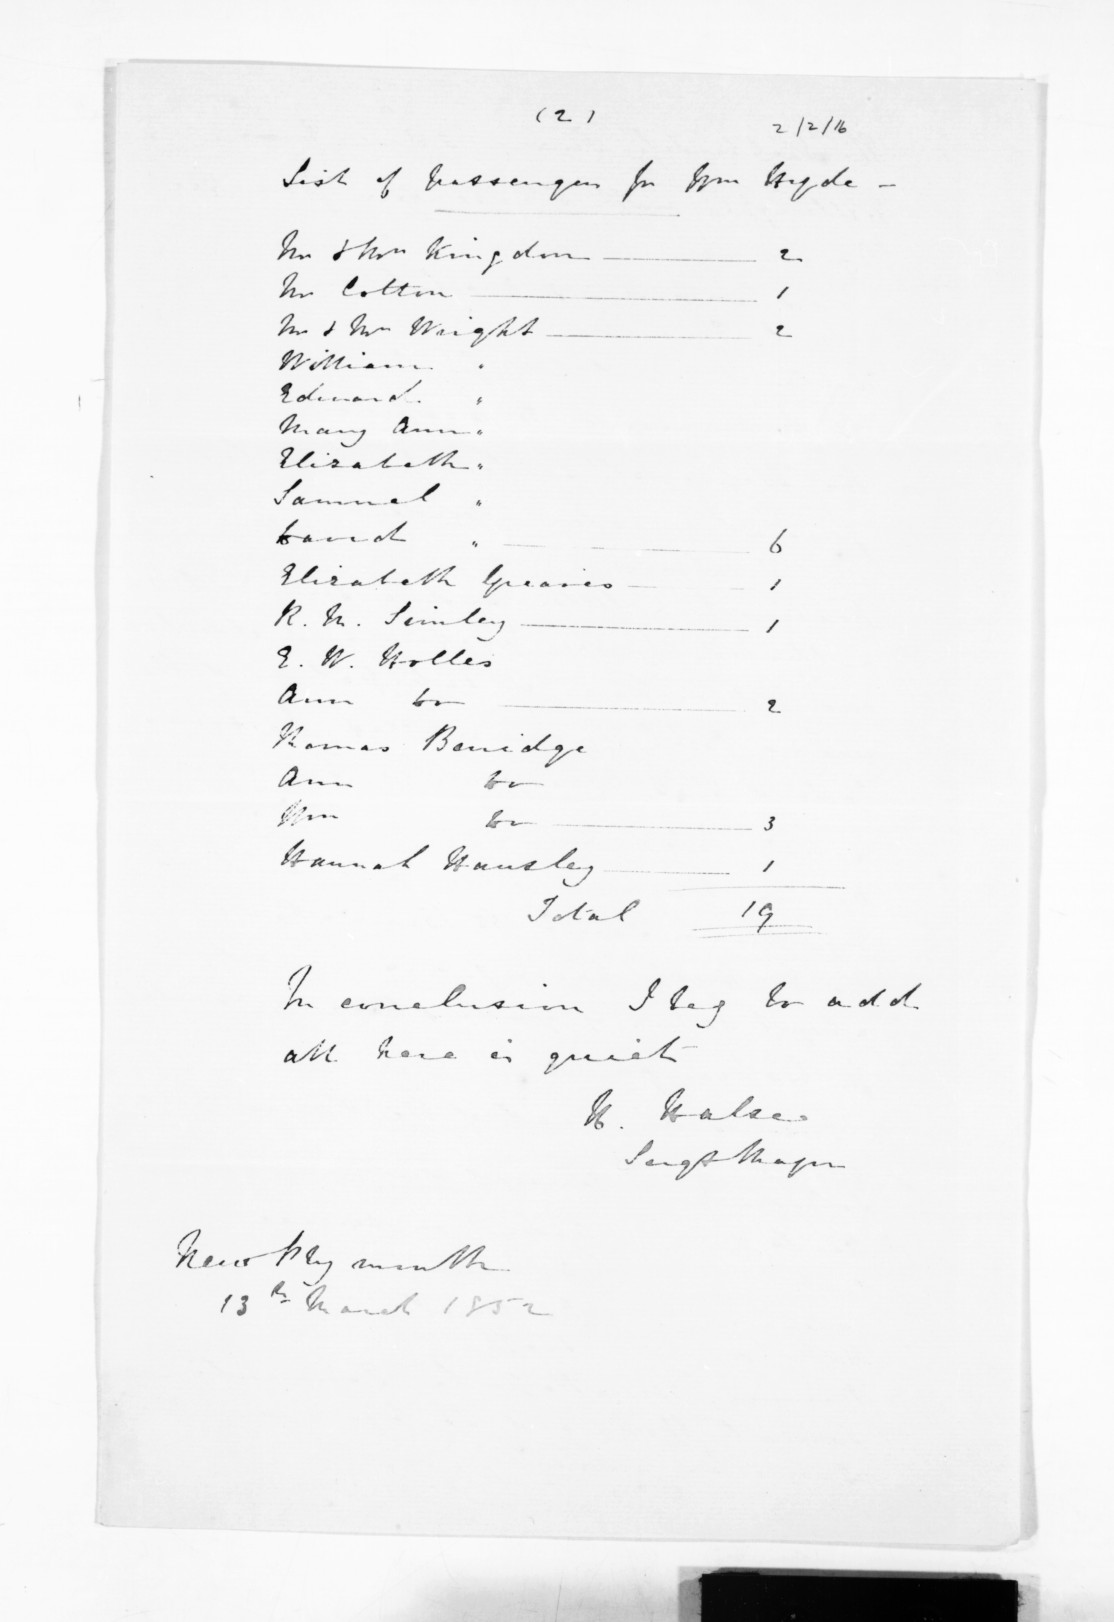 (2)
2/2/16
List of passengers pr Wm Hyde -
Mr & Mrs Kingdon 2
Mr Cotton 1
Mr & Mrs Wright 2
William "
Edward "
Mary Ann "
Elizabeth "
Samuel "
David " 6
Elizabeth Greaves 1
R. M. Simley 1
E. W. Holles
Ann Do 2
Thomas Berridge
Ann Do
Wm Do 3
Hannah Hausley 1
Total 19
In conclusion I beg to add
all here is quiet
H. Halse
Sergt Major
New Plymouth
13th March 1852